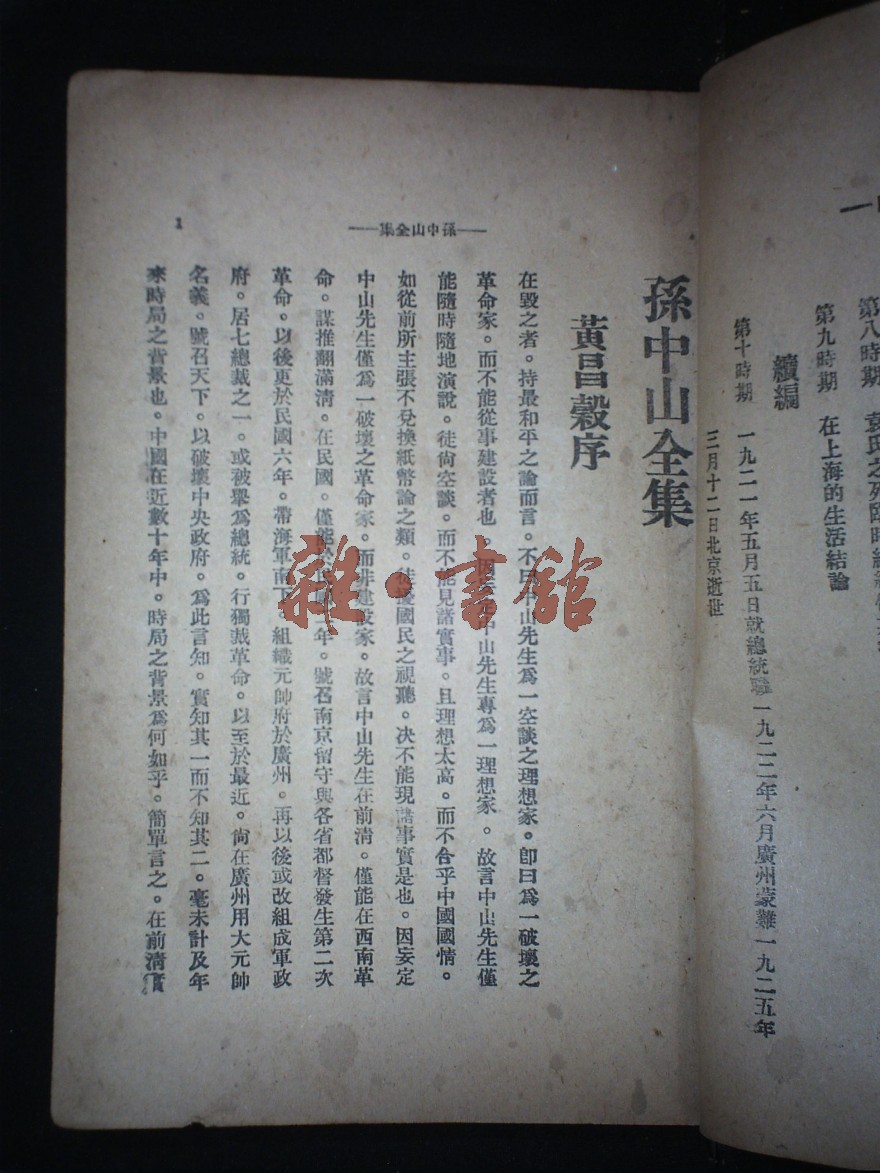 第八時期　袁氏之
第九時期　在上海的生活結論
續編
第十時期　一九二一年五月五日就總統職一九二二年六月廣州蒙難一九二五年
三月十二日北京逝世
孫中山全集
黃昌穀序
在毀之者。持最和平之論而言。不曰中山先生爲一空談之理想家。卽曰爲一破壞之
革命家。而不能從事建設者也。因妄定中山先生專爲一理想家。故言中山先生僅
能隨時隨地演說。徒尙空談。而不能見諸實事。且理想太高。而不合乎中國國情。
如從前所主張不兌換紙幣論之類。徒擾國民之視聽。決不能現諸事實是也。因妄定
中山先生僅爲一破壞之革命家。而非建設家。故言中山先生在前淸。僅能在西南革
命。謀推翻滿淸。在民國。僅能於民國二年。號召南京留守與各省都督發生第二次
革命。以後更於民國六年。帶海軍南下。組織元帥府於廣州。再以後或改組成軍政
府。居七總裁之一。或被舉爲總統。行獨裁革命。以至於最近。尙在廣州用大元帥
名義。號召天下。以破壞中央政府。爲此言知。實知其一而不知其二。毫未計及年
來時局之背景也。中國在近數十年中。時局之背景爲何如乎。簡單言之。在前淸實
——孫中山全集——
1
雜·書館